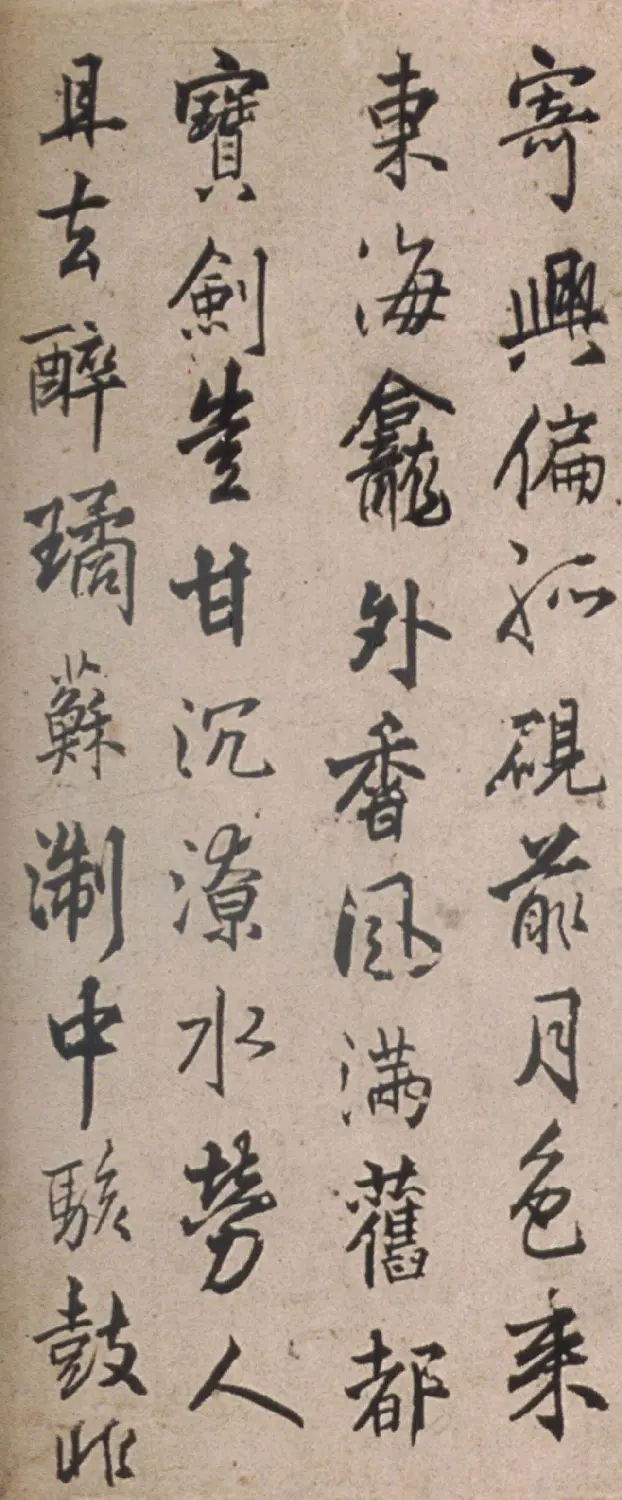 寄興偏孤硯前月色乘
東海龕外香風滿舊都
寶劍豈甘沉潦水勞人
且去醉璚蘇淛中駭鼓